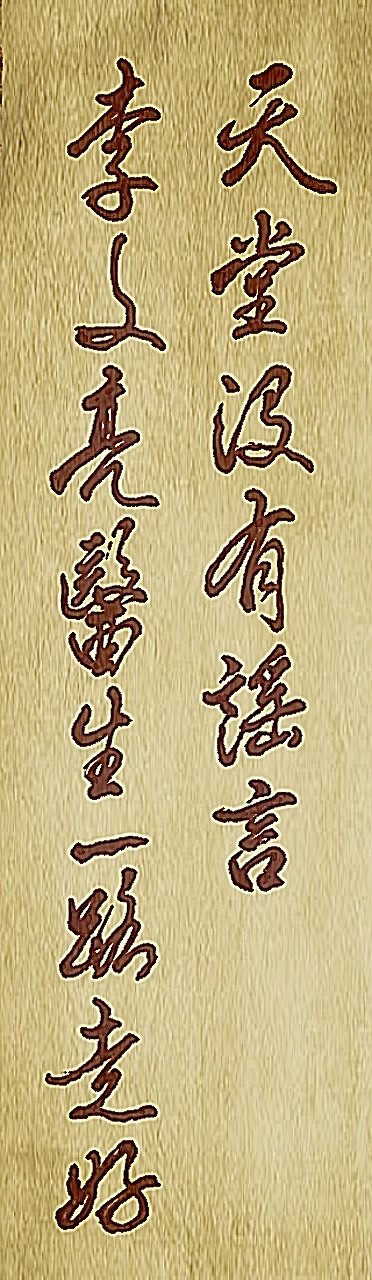 天堂没有謠言
李文亮醫生一路走好